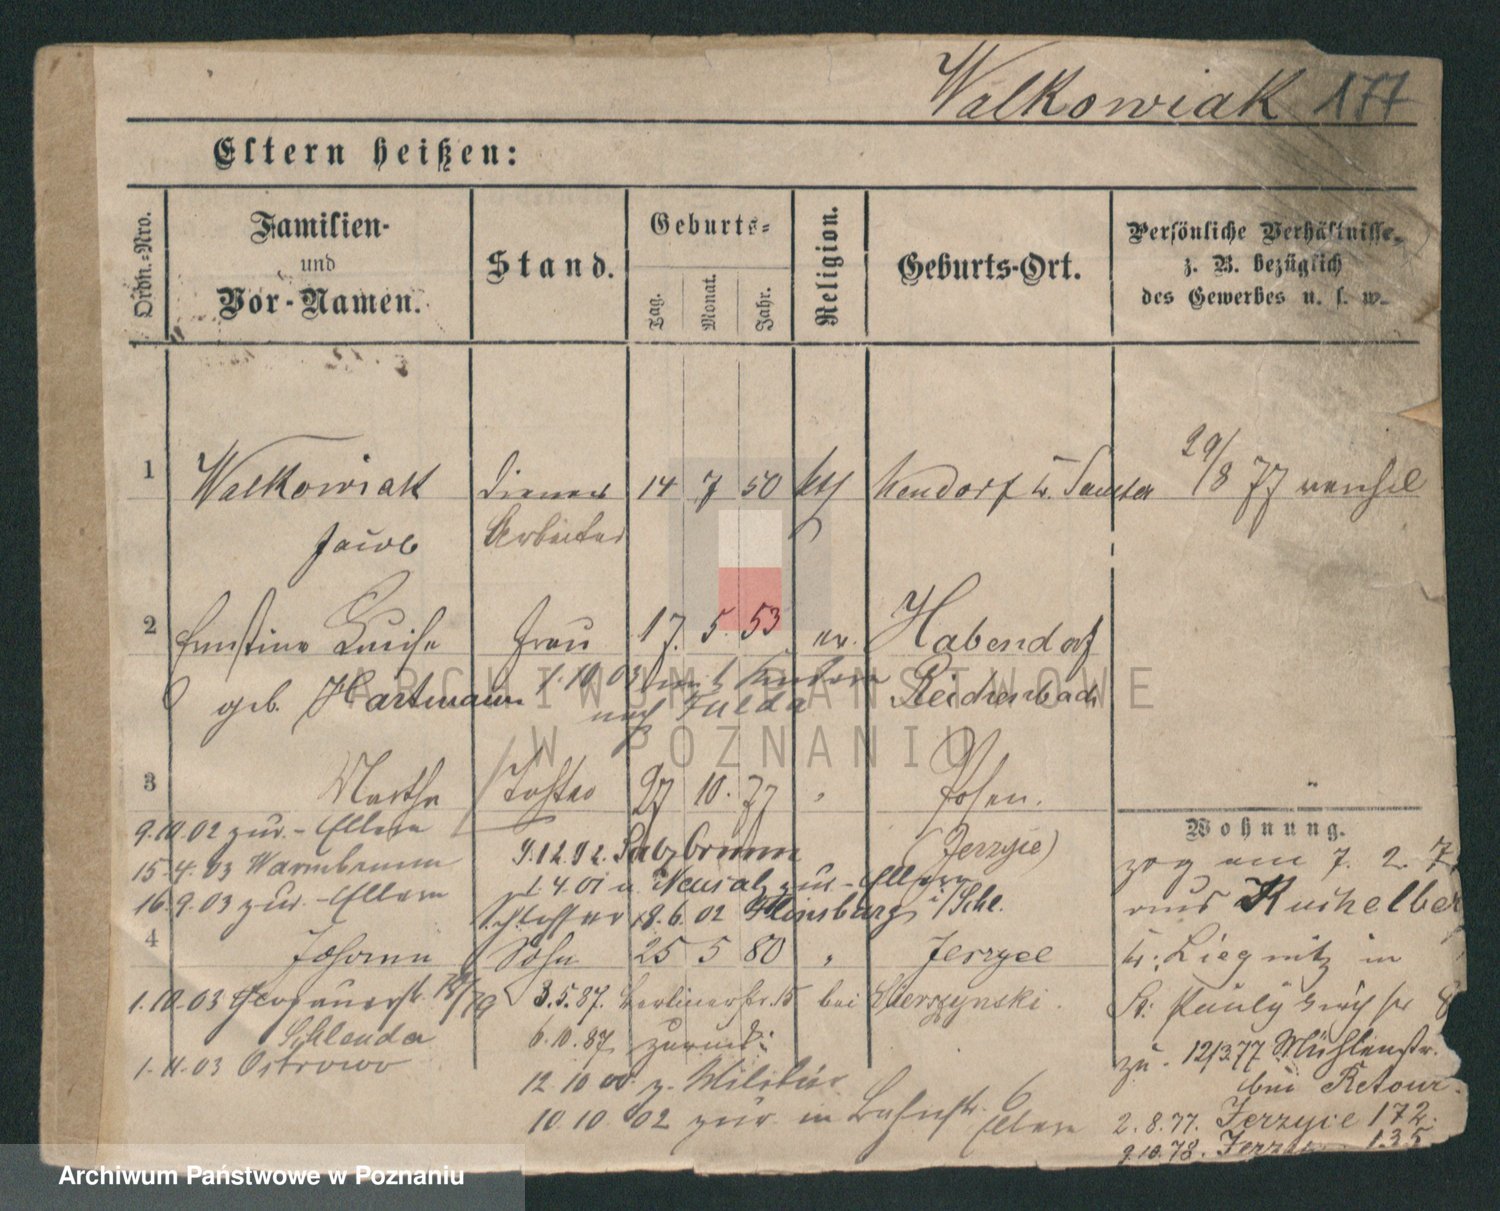 Walkowiak 177
Eltern heißen:
Ordn.-Nro.
Familien-
und
Vor-Namen.
Stand.
Geburts-
Tag. Monat. Jahr.
Religion.
Geburts-Ort.
Persönliche Verhältnisse,
z. B. bezüglich
des Gewerbes u. s. w.
1 Walkowiak Diener 14 7 50 kth Kr. Samter 29/8 77
Jacob Arbeiter
2 Ernstine Luise Frau 17. 5. 53 ev. Habendorf
geb. Hartmann Reichenbach
1.10.03 mit Kindern
nach Fulda
3 Martha Tochter 27 10. 77 " Posen.
(Jerzyce)
9.10.02 zur. - Eltern
15.4.03 Warmbrunn
16.9.03 zur. - Eltern
9.12.92. Salzbrunn
1.4.01 u. Neusalz zur - Eltern
18.6.02 Flinsburg i/Schl.
Schlosser
4 Johann Sohn 25 5 80 " Jerzyce
1.10.03
Schlenda
1.11.03 Ostrowo
3.5.87. Berlinerstr. 15 bei
6.10.87 zurück
12.10.00 z. Militär
10.10.02 zur. in Bahnstr. 6
Eltern
Wohnung.
zog am 7. 2. 7
aus
Kr. Liegnitz in
St. Pauly
zu. 12/3 77 Mühlenstr.
bei Retour.
2.8.77. Jerzyce 172.
9.10.78. 135
ARCHIWUM PAŃSTWOWE
W POZNANIU
Archiwum Państwowe w Poznaniu